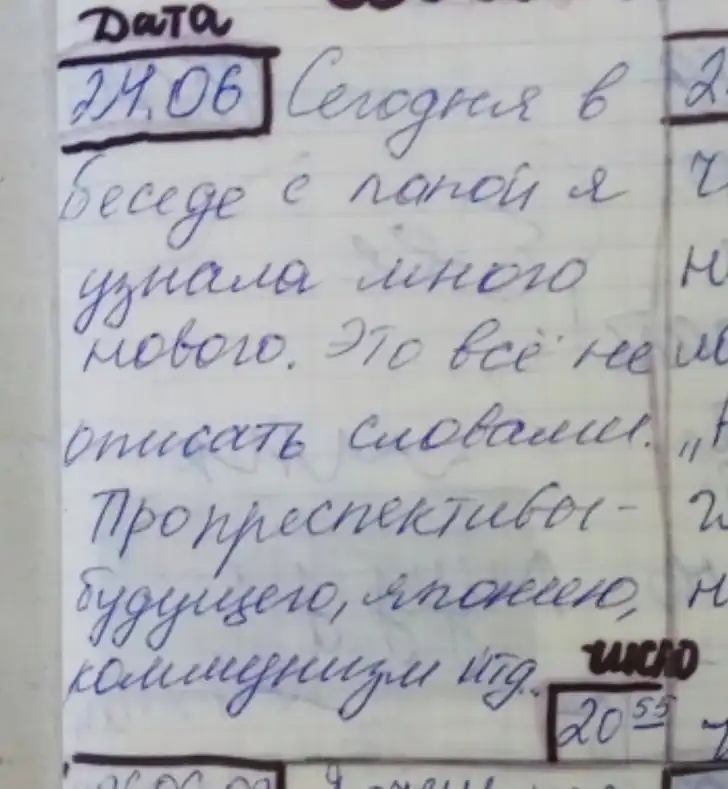 Дата
24.06 Сегодня в
беседе с папой я
узнала много
нового. Это всё не
описать словами.
Про преспективы-
будущего, японию,
коммунизм итд.
число
20 55